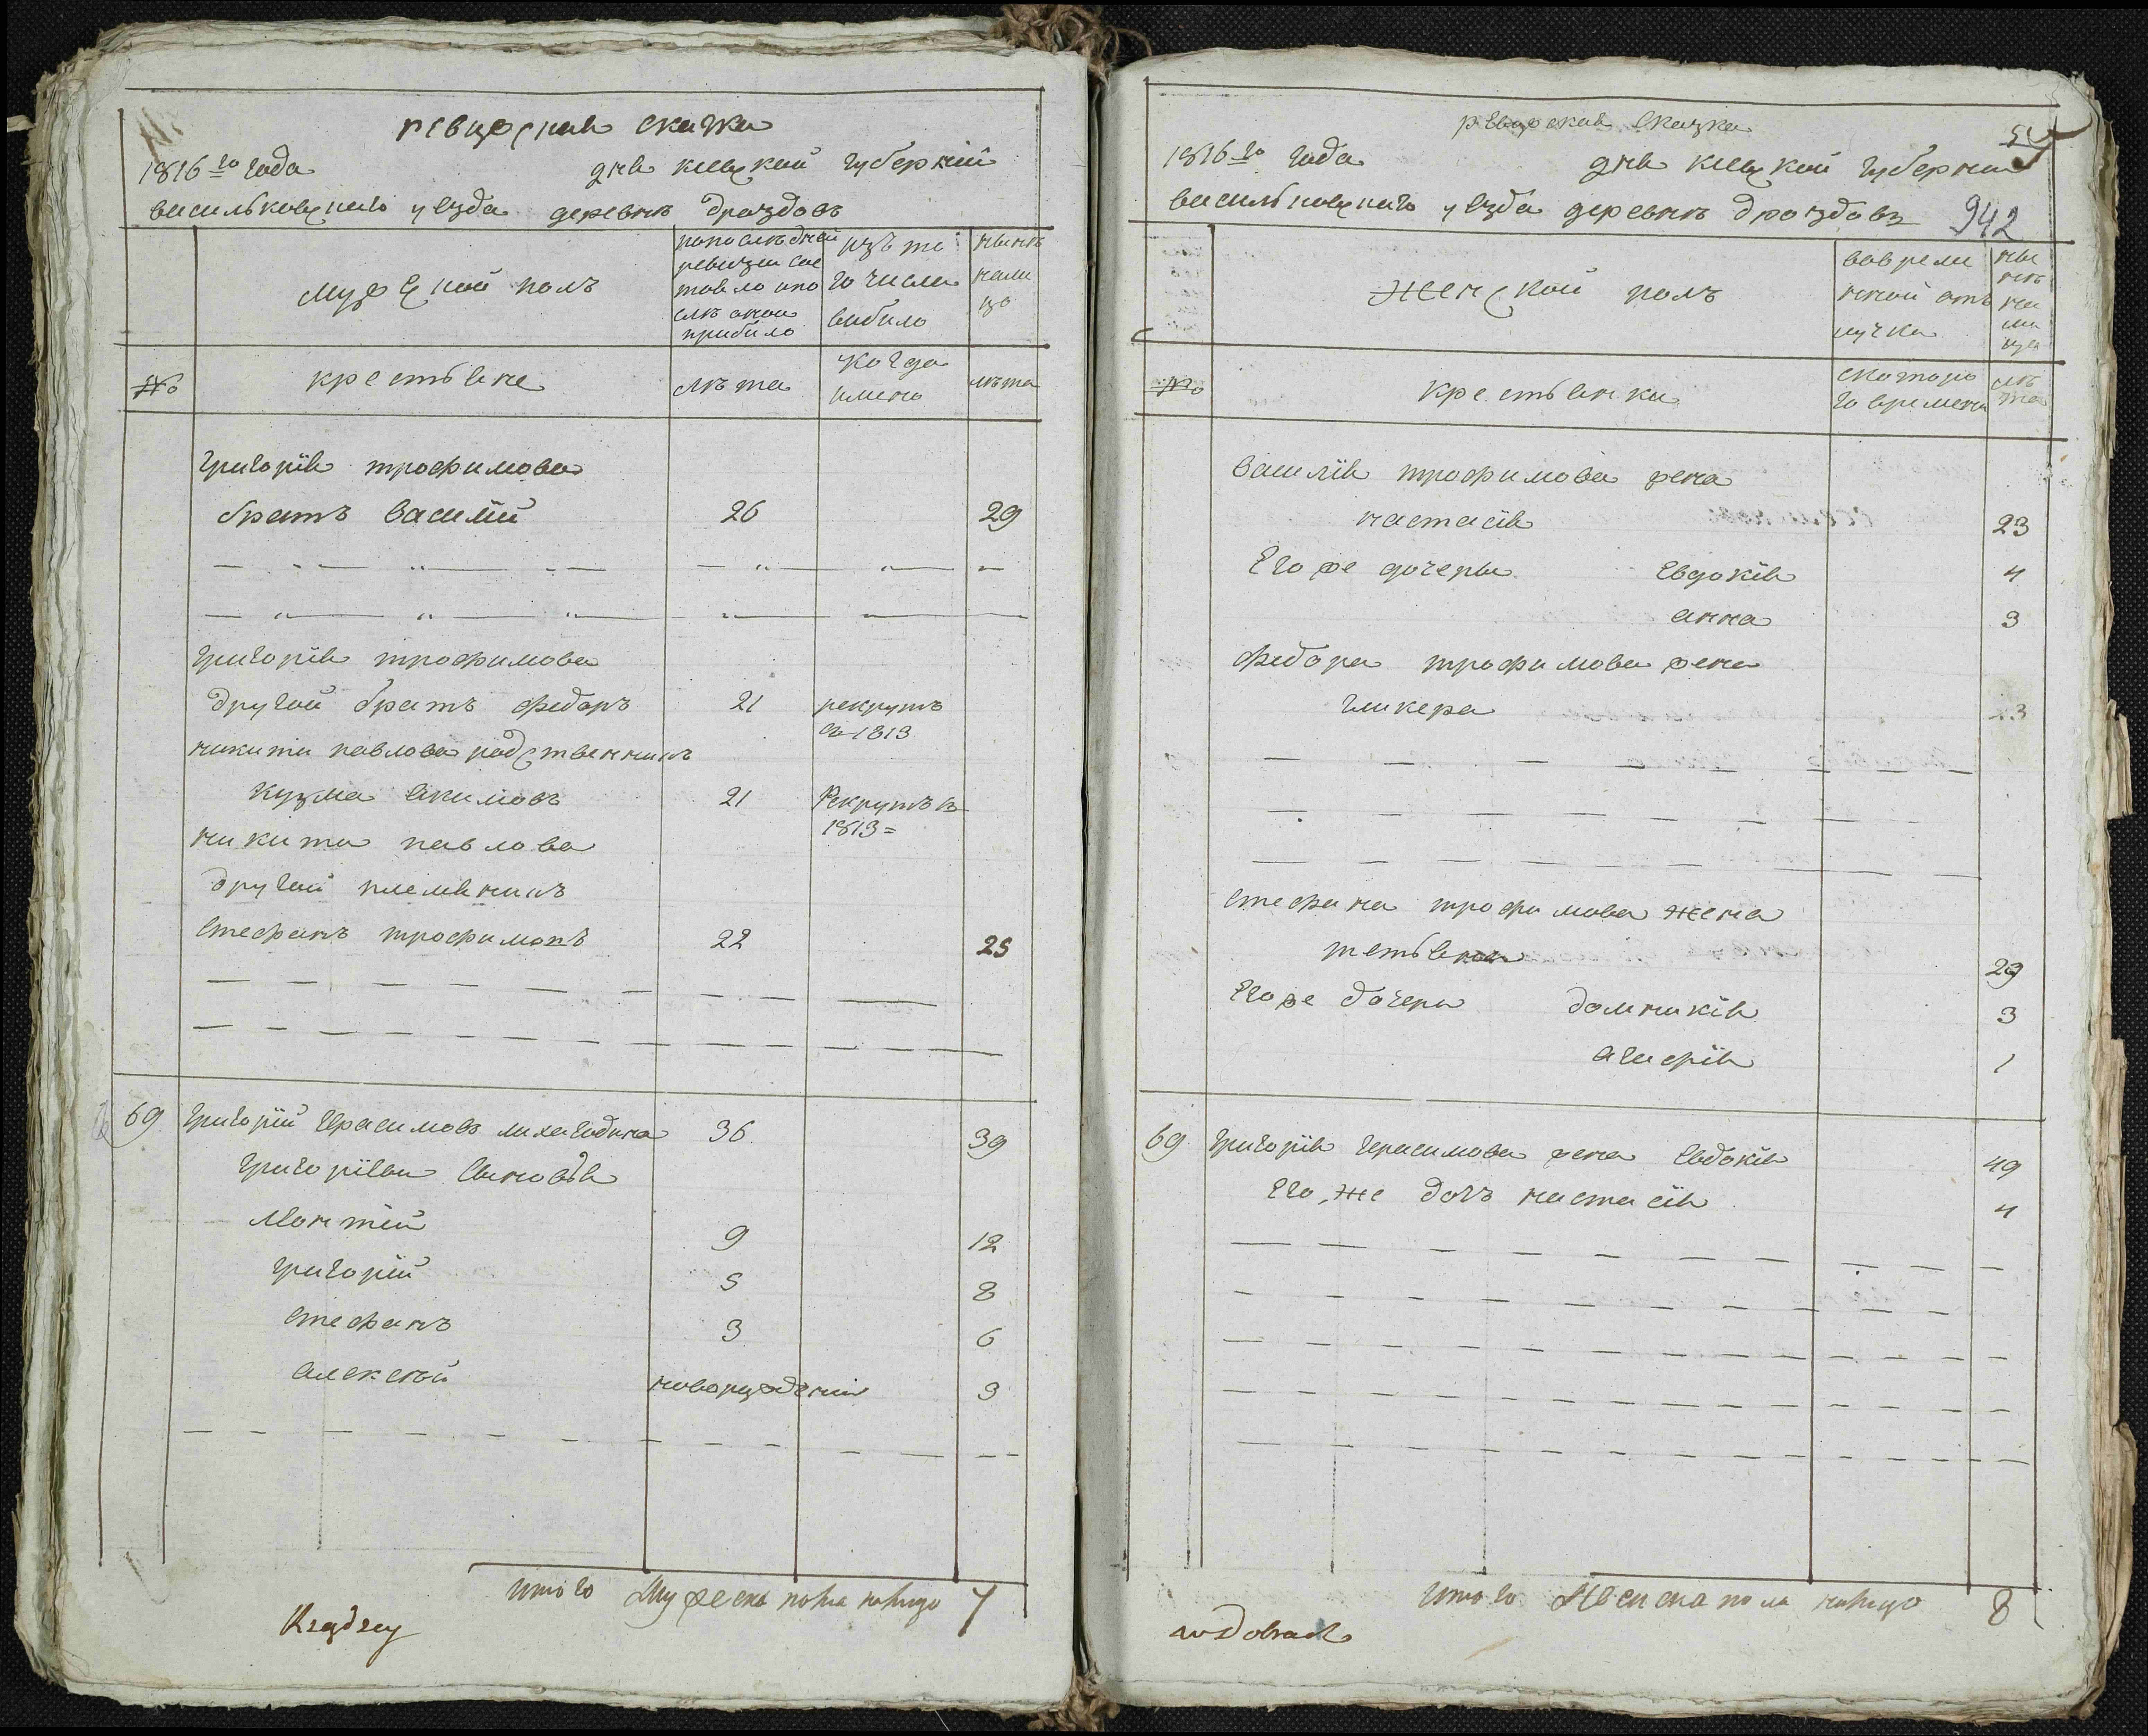 ревизская сказка
1816го года дня киевской губернии
васильковскаго уезда деревни Дроздовъ
мужеской полъ
попоследней ревизии состояло ипосле оной прибыло
изъ того числа выбыло
ныне налицо
№
крестьяне
лета
когда имено
лета
григорія трофимова
братъ василій 26 29
григорія трофимова
другой братъ федоръ 21 рекрутъ в 1813
никиты павлова родственникъ
кузма якимовъ 21 Рекрутъ в 1813
никиты павлова
другой племяникъ
стефанъ трофимовъ 22 25
69 григорій герасимовъ лихагодина 36 39
григоріевы сыновья
Монтій 9 12
григорій 5 8
стефанъ 3 6
алексѣй новорожденій 3
итого Мужеска пола налицо 7
Rządzcy
ревизская сказка
54
1816го года дня киевской губернии
васильковскаго уезда деревни дроздовъ 942
женской полъ
вовременной отлучки
ныне налицо
№
крестьянки
скоторого времени
лета
василія трофимова жена
настасія 23
Его же дочеры Евдокія 4
анна 3
федора трофимова жена
гликера 23
стефана трофимова жена
тетьяна 29
Его же дочеры домникія 3
агафія 1
69 григорія герасимова жена Евдокія 49
Его же дочъ настасія 4
итого женска пола налицо 8